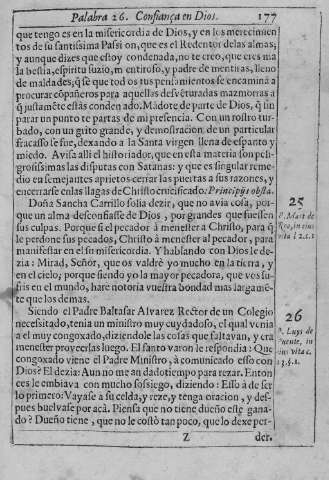 Palabra 26. Confiança en Dios. 177
que tengo es en la misericordia de Dios, y en los merecimien
tos de su santissima Passion, que es el Redentor de las almas;
y aunque dizes que estoy condenada, no te creo, que eres ma
la bestia, espiritu suzio, mentiroso, y padre de mentiras, lleno
de maldades; q̃ sè que todos tus pensamientos se encaminã a
procurar cõpañeros para aquellas desvẽturadas mazmorras a
q̃ justamẽte estàs condenado. Mãdote de parte de Dios, q̃ sin
parar un punto te partas de mi presencia. Con un rostro tur-
bado, con un grito grande, y demostracion de un particular
fracasso se fue, dexando a la Santa virgen llena de espanto y
miedo. Avisa alli el historiador, que en esta materia son peli-
grosissimas las disputas con Satanas: y que es singular reme-
dio en semejantes aprietos cerrar las puertas a sus razones, y
encerrarse en las llagas de Christo crucificado: Principijs obsta.
Doña Sancha Carrillo solia dezir, que no avia cosa, por-
que un alma desconfiasse de Dios, por grandes que fuessen
sus culpas. Porque si el pecador à menester a Christo, para q̃
le perdone sus pecados, Christo à menester al pecador, para
manifestar en el su misericordia. Y hablando con Dios le de-
zia: Mirad, Señor, que os valdrè yo mucho en la tierra, y
en el cielo; porque siendo yo la mayor pecadora, que ves su-
fris en el mundo, harè notoria vuestra bondad mas largamẽ-
te que los demas.
25
Siendo el Padre Baltasar Alvarez Rector de un Colegio
necessitado, tenia un ministro muy cuydadoso, el qual venia
a el muy congoxado, diziendole las cosas que faltavan, y era
menester proveerlas luego. El santo varon le respondia: Que
congoxado viene el Padre Ministro, à comunicado esso con
Dios? El dezia: Aun no me an dado tiempo para rezar. Enton
ces le embiava con mucho sossiego, diziendo: Esso à de ser
lo primero: Vayase a su celda, y reze, y tenga oracion, y des-
pues buelvase por acà. Piensa que no tiene dueño este gana-
do? Dueño tiene, que no le costò tan poco, que lo dexe per-
26
Z der.